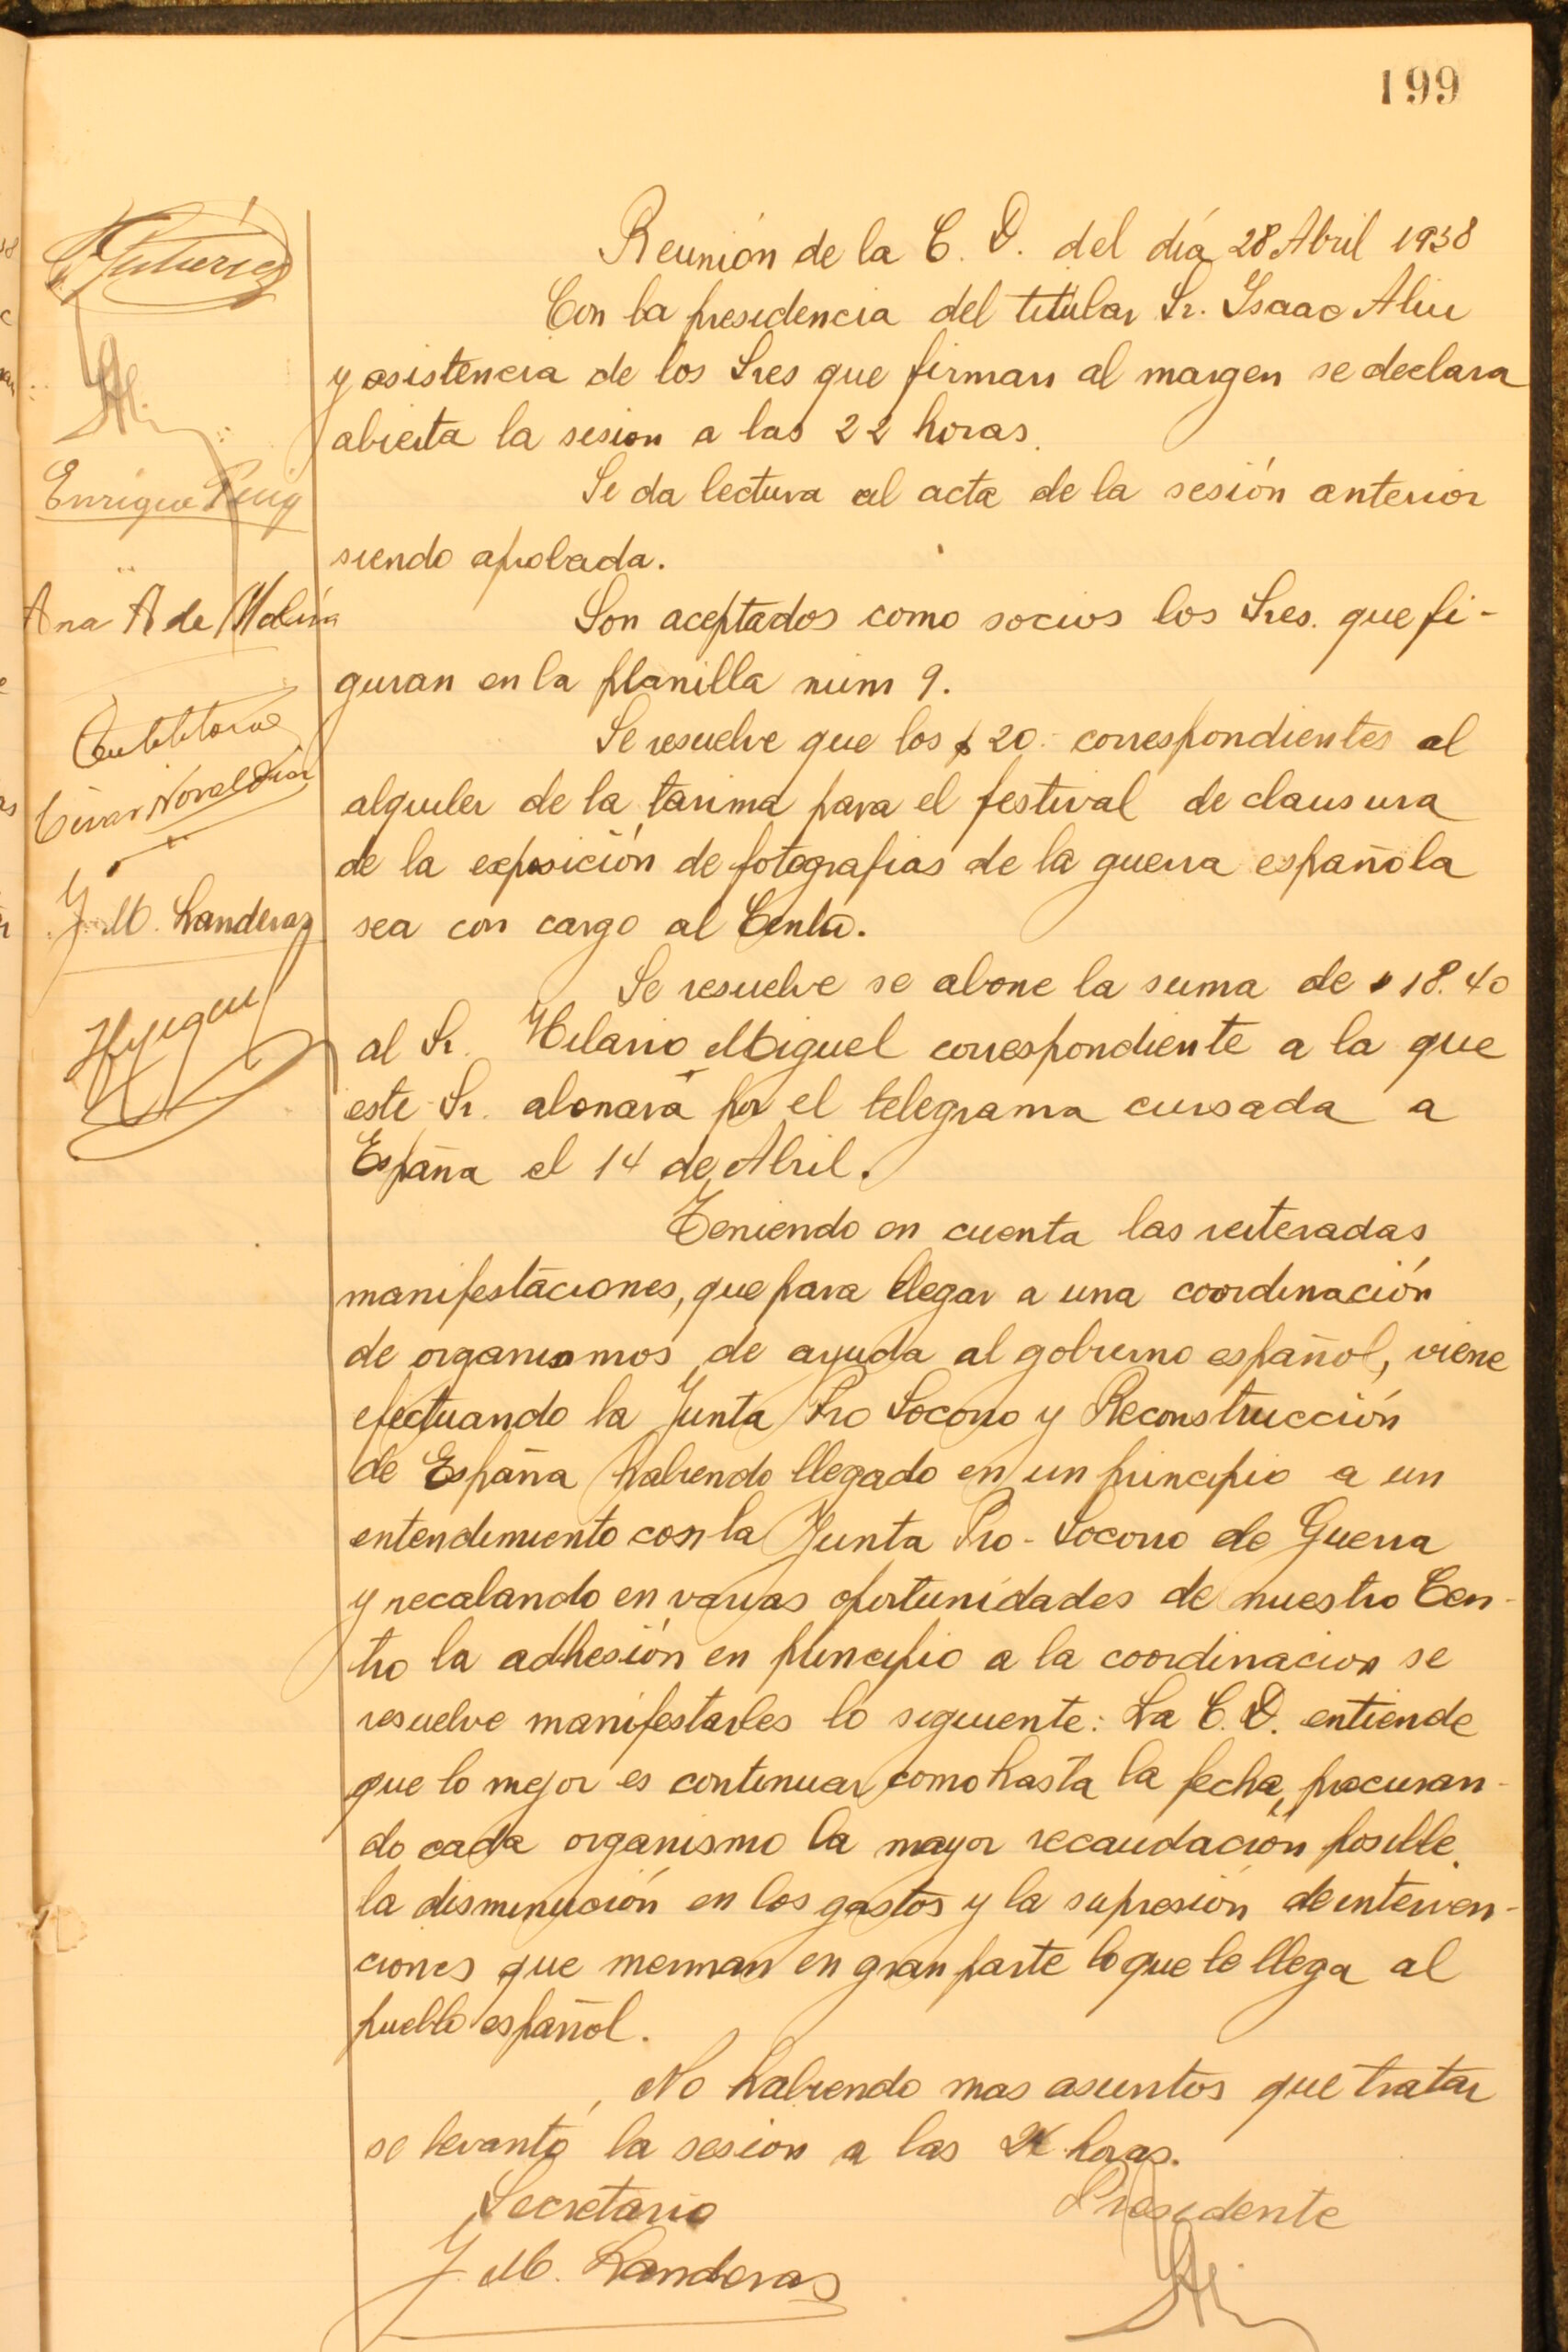 199
Reunión de la C. D. del día 28 Abril 1938
Con la presidencia del titular Sr. Isaac
y asistencia de los Sres que firman al margen se declara
abierta la sesion a las 22 horas.
Se da lectura al acta de la sesión anterior
siendo aprobada.
Son aceptados como socios los Sres. que fi-
guran en la planilla núm 9.
Se resuelve que los $ 20.- correspondientes al
alquiler de la tarima para el festival de clausura
de la exposición de fotografias de la guerra española
sea con cargo al Centro.
Se resuelve se abone la suma de $ 18.40
al Sr. Hilario Miguel correspondiente a la que
este Sr. abonará por el telegrama cursada a
España el 14 de Abril.
Teniendo en cuenta las reiteradas
manifestaciones, que para llegar a una coordinación
de organismos de ayuda al gobierno español, viene
efectuando la Junta Pro Socorro y Reconstrucción
de España habiendo llegado en un principio a un
entendimiento con la Junta Pro-Socorro de Guerra
y recalando en varias oportunidades de nuestro Cen-
tro la adhesión en principio a la coordinacion se
resuelve manifestarles lo siguiente: La C. D. entiende
que lo mejor es continuar como hasta la fecha, procuran-
do cada organismo la mayor recaudación posible,
la disminución en los gastos y la supresión de interven-
ciones que merman en gran parte lo que le llega al
pueblo español.
No habiendo mas asuntos que tratar
se levantó la sesion a las horas.
Secretario Presidente
J. M. Landeras
Enrique Puig
Ana A de Molina
J. M. Landeras